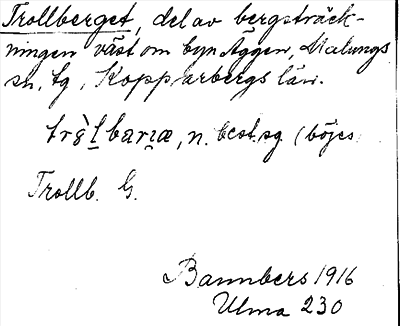 Trollberget, del av bergsträck-
ningen väst om byn Äggen, Malungs
sn, tg, Kopparbergs län.
bariæ, n. best. sg. (böjes
Trollb. G.
Bannbers 1916
Ulma 230